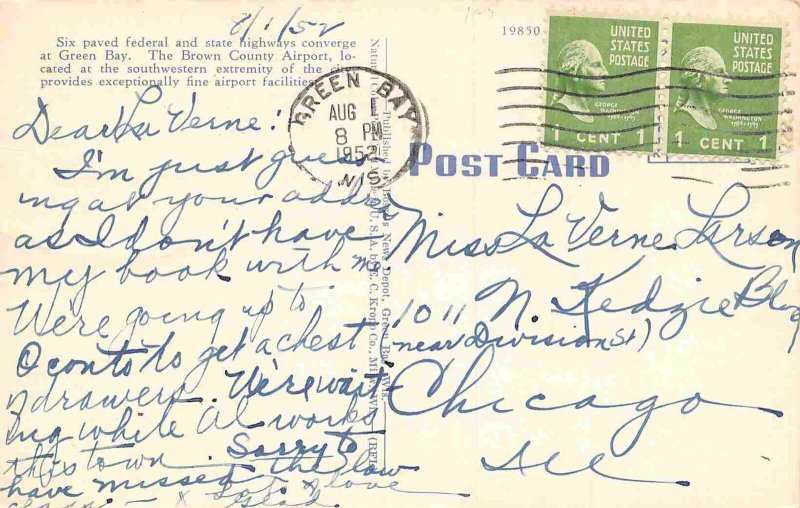 8/1/52
Six paved federal and state highways converge
at Green Bay. The Brown County Airport, lo-
cated at the southwestern extremity of the city
provides exceptionally fine airport facilities
19850
UNITED
STATES
POSTAGE
GEORGE
WASHINGTON
1789-1797
1 CENT 1
UNITED
STATES
POSTAGE
GEORGE
WASHINGTON
1789-1797
1 CENT 1
GREEN BAY
AUG
8 PM
1952
WIS.
POST CARD
Dear La Verne:
I'm just guess
ing at your address
as I don't have
my book with me
We're going up to
Oconto to get a chest
n drawers. We're wait-
ing while Al works
this town. Sorry to
have missed the low
love
Glad.
Published by News Depot, Green Bay, Wis.
U.S.A. by E. C. Kropp Co., Milwaukee
Miss La Verne Larson
1011 N. Kedzie Blvd
(near Division St)
Chicago
Ill